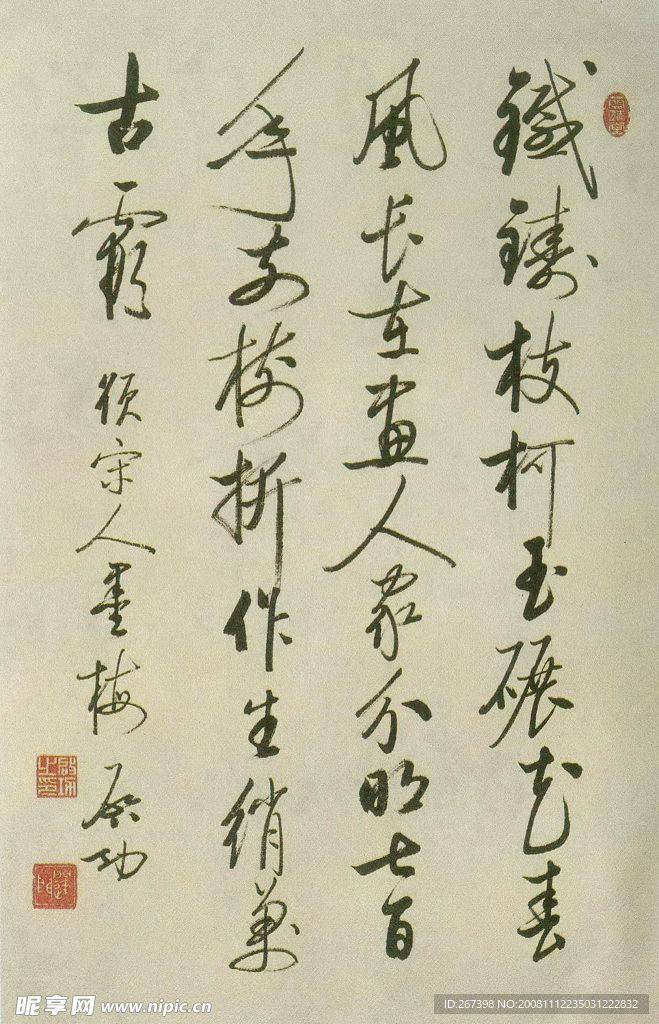 鐵鑄枝柯玉碾花春
風長在畫人家分明七百
年前樹折作生綃萬
古霞 題宋人墨梅 啟功
啟功之印
昵享网 www.nipic.cn
ID:267398 NO:20081112235031222832